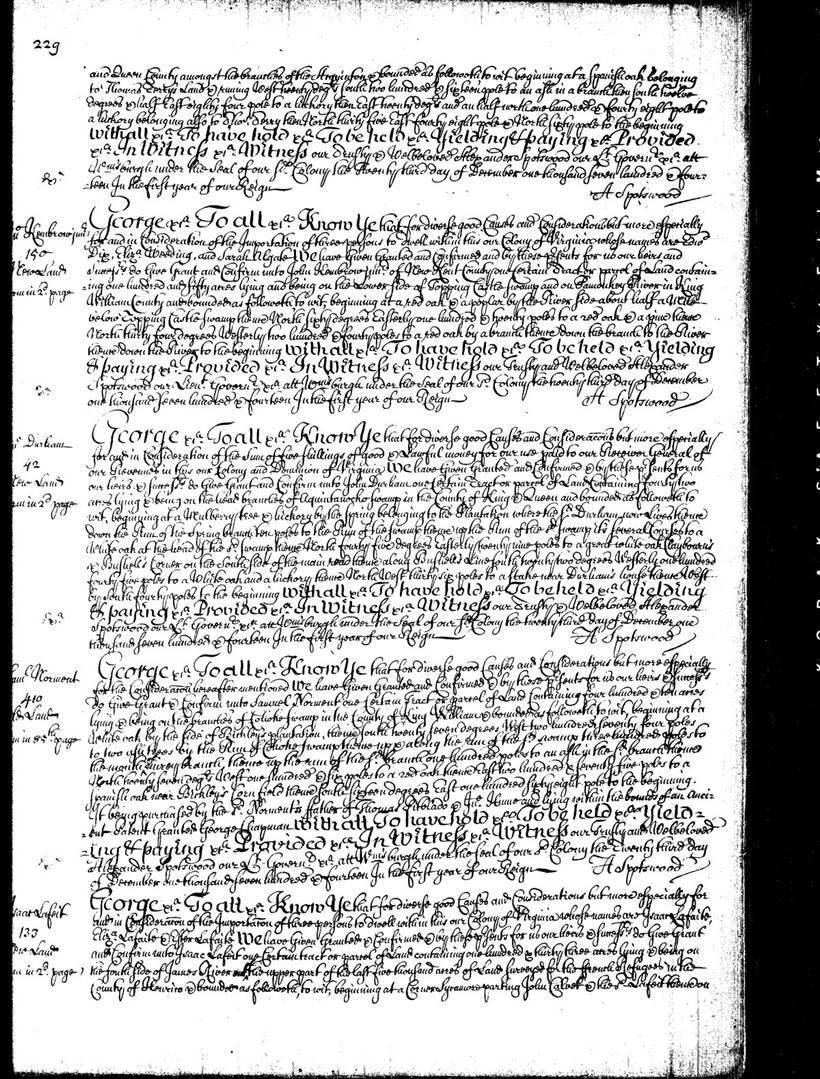 229
and Queen County amongst the branches of the & bounded as followeth to wit beginning at a Spanish oak belonging
to Thomas Terrys Land & runing West twenty degs South two hundred & sixteen pole to an ash in a branch then South twelve
degrees & half East eighty four pole to a hickory then East twenty degs and an half north one hundred & fourty eight pole to
a hickory belonging also to Thos. Terry then North thirty five East fourty eight pole & North sixty pole to the beginning
with all &ca. To have hold &ca. To be held &ca. Yielding & paying &ca. Provided
&ca. In Witness &ca. Witness our Trusty & Welbeloved Alexander Spotswood our Lt. Governr. &ca. att
Wmsburgh under the Seal of our Sd. Colony the Twenty third day of December one thousand seven hundred & four-
-teen In the first year of our Reign
A Spotswood
George &ca. To all &ca. Know Ye that for diverse good Causes and Considerations but more especially
for and in Consideration of the Importation of three persons to dwell within this our Colony of Virginia whose names are
Dix, Eliza. Weeding, and Sarah We have Given Granted and Confirmed and by these prsents for us our heirs and
Succesrs. do Give Grant and Confirm unto John Kembrow junr. of New Kent County one Certain Tract or parcel of Land contain-
ing one hundred and fifty acres lying and being on the Lower side of Topping Castle Swamp and on Pamunkey River in King
William County and bounded as followeth to wit, beginning at a red oak & a poplar by the River side about half a Mile
below Topping Castle Swamp thence North sixty degrees Easterly one hundred & twenty poles to a red oak & a pine thence
North thirty four degrees Westerly two hundred & fourty poles to a red oak by a branch thence down the branch to the River
thence down the River to the beginning with all &ca. To have hold &ca. To be held &ca. Yielding
& paying &ca. Provided &ca. In Witness &ca. Witness our Trusty and Welbeloved Alexander
Spotswood our Lieu. Governr. &ca. att Wmsburgh under the Seal of our Sd. Colony the twenty third day of December
one thousand seven hundred & fourteen In the first year of our Reign
A Spotswood
Kembrow junr.
150
New Land
in 2d. page
George &ca. To all &ca. Know Ye that for diverse good Causes and Consideracons but more especially
for and in Consideration of the Sum of five shillings of good & Lawful money for our use paid to our Receiver General of
our Revenues in this our Colony and Dominion of Virginia We have Given Granted and Confirmed & by these prsents for us
our heirs & Succesrs. do Give Grant and Confirm unto John Durham one Certain Tract or parcel of Land Containing fourty two
acres lying & being on the head branches of Aquintanocko Swamp in the County of King & Queen and bounded as followeth to
wit, beginning at a Mulberry tree & hickory by the spring belonging to the Plantation where the Sd. Durham now Lives thence
down the Run of the Spring branch ten poles to the Run of the Swamp thence up the Run of the Sd. Swamp its several Courses to a
White oak at the head of the Sd. Swamp thence North fourty five degrees Easterly twenty nine poles to a great white oak
& Corner on the South side of the main road thence along Line South twenty two degrees Westerly one hundred
fourty five poles to a White oak and a hickory thence North West thirty six poles to a Stake near Durham's house thence West
by South fourty poles to the beginning with all &ca. To have hold &ca. To be held &ca. Yielding
& paying &ca. Provided &ca. In Witness &ca. Witness our Trusty & Welbeloved Alexander
Spotswood our Lt. Governr. &ca. att Wmsburgh under the Seal of our Sd. Colony the twenty third day of December one
thousand seven hundred & fourteen In the first year of our Reign
A Spotswood
Durham
42
New Land
in 2d. page
George &ca. To all &ca. Know Ye that for diverse good Causes and Considerations but more especially
for the Consideration hereafter mentioned We have Given Granted and Confirmed & by these prsents for us our heirs & Succesrs.
do Give Grant & Confirm unto Samuel Norment one Certain Tract or parcel of Land Containing four hundred & ten acres
lying & being on the branches of Cohoke Swamp in the County of King William & bounded as followeth to wit, beginning at a
White oak by the side of plantation, thence South twenty seven degrees West two hundred seventy four poles
to two ash trees by the Run of Cohoke Swamp thence up & along the Run of the Sd. Swamp three hundred poles to
the mouth branch thence up the run of the Sd. branch one hundred poles to an ash in the Sd. branch thence
North twenty seven degs West one hundred & six poles to a red oak thence East two hundred & seventy five poles to a
Spanish oak near Corn field thence South sixteen degrees East one hundred sixty eight pole to the beginning.
It being purchased by the Sd. Norment's father of Thomas & and lying within the bounds of an Anci-
-ent Patent Granted George Chapman with all To have hold &ca. To be held &ca. Yield-
-ing & paying &ca. Provided &ca. In Witness &ca. Witness our Trusty and Welbeloved
Alexander Spotswood our Lt. Governr. &ca. att Wmsburgh under the Seal of our Sd. Colony the Twenty third day
of December one thousand seven hundred & fourteen In the first year of our Reign
A Spotswood
Norment
410
Land
in page
George &ca. To all &ca. Know Ye that for diverse good Causes and Considerations but more especially for
and in Consideration of the Importation of three persons to dwell within this our Colony of Virginia whose names are Isaac Lafaite,
Eliza. Lafaite & Ester Lafaite We have Given Granted & Confirmed & by these prsents for us our heirs & Succesrs. do Give Grant
and Confirm unto Isaac Lafeit one Certain tract or parcel of Land containing one hundred & thirty three acres lying & being on
the South side of James River the upper part of the last five thousand acres of Land surveyed for the French Refugees in the
County of Henrico & bounded as followeth, to wit, beginning at a Corner Sycamore parting John Calvet & the Sd. Lafeit thence on
Isaac Lafeit
133
New Land
in 2d. page